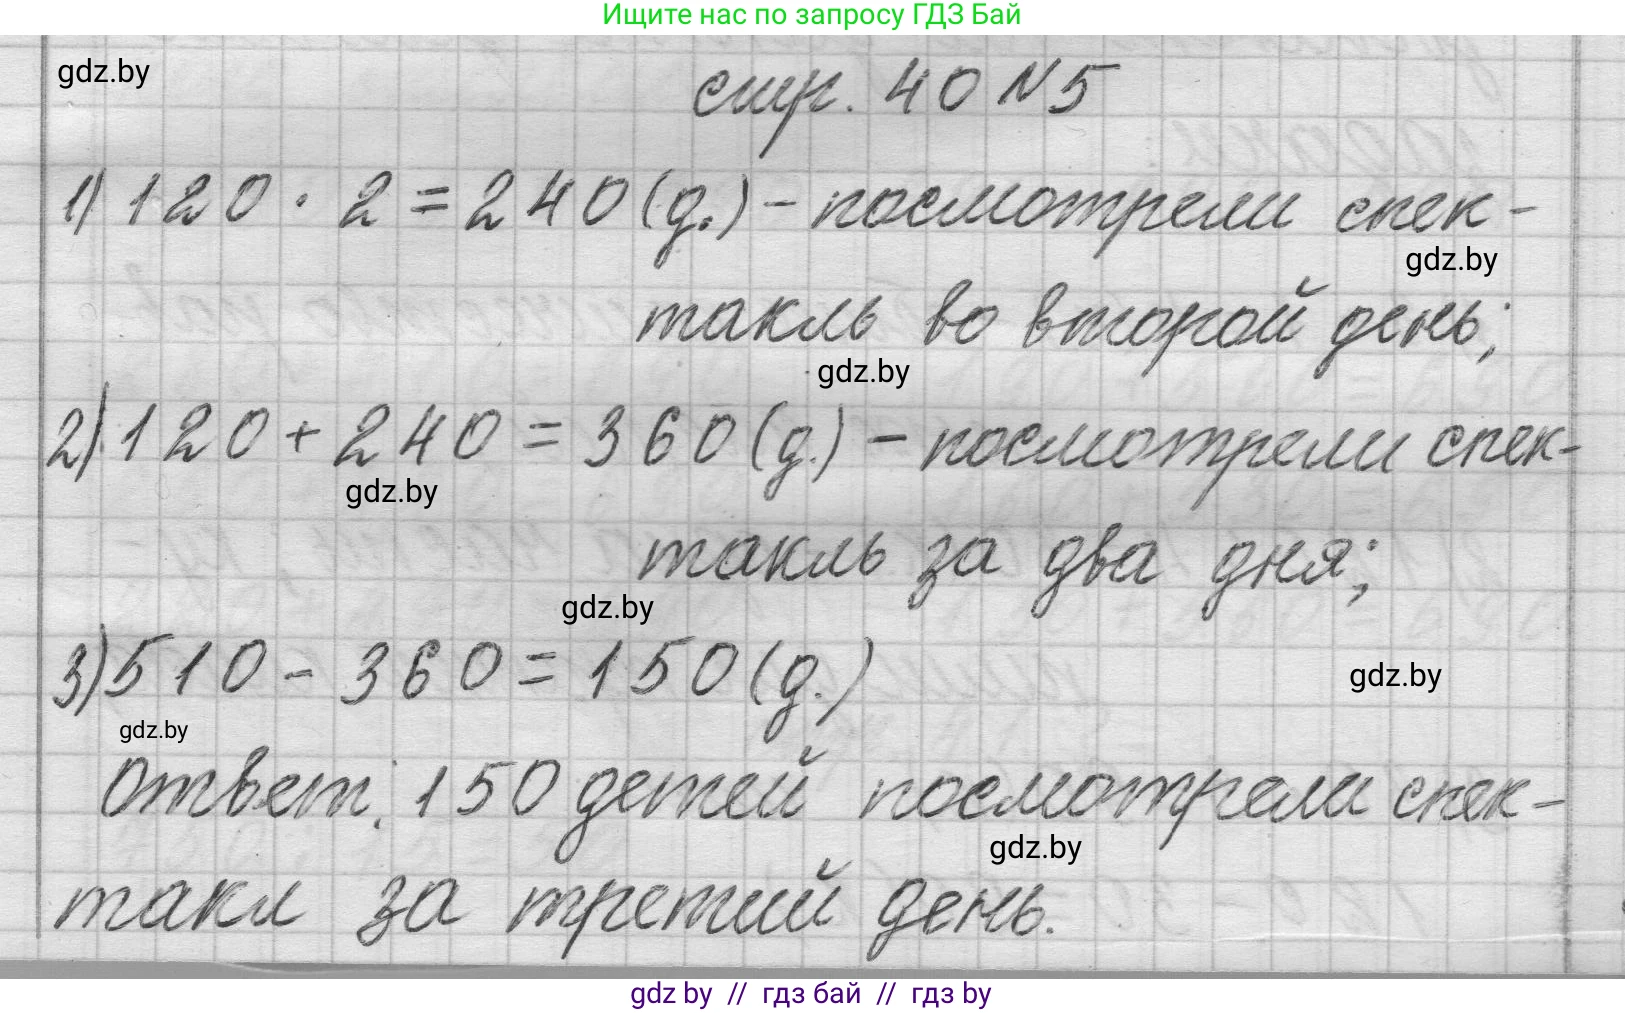 Ищите нас по запросу ГДЗ Бай
gdz.by
стр. 40 N 5
1) 120 · 2 = 240 (д.) - посмотрели спек-
gdz.by
такль во второй день;
gdz.by
2) 120 + 240 = 360 (д.) - посмотрели спек-
gdz.by
такль за два дня;
gdz.by
3) 510 - 360 = 150 (д.)
gdz.by
gdz.by
Ответ: 150 детей посмотрели спек-
gdz.by
такл за третий день.
gdz by // гдз бай // гдз by